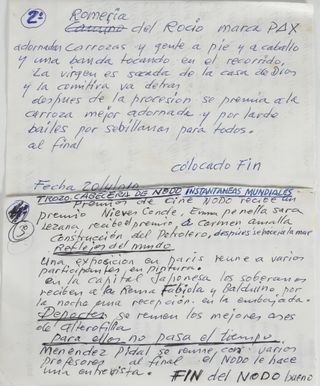 2ª
Romeria
Camino del Rocio marca PAX
adornatas carrozas y gente a pie y a caballo
y una banda tocando en el recorrido.
La virgen es sacada de la casa de Dios
y la comitiva va detras
despues de la procesion se premia a la
carroza mejor adornada y por tarde
bailes por sebillanas para todos.
al final
colocado Fin
Fecha
TROZO CABECERA DE NODO INSTANTANEAS MUNDIALES
Premios de cine NODO recibe un
premio Nieves Conde, Emma penella sara
Lezana recibe premio a Carmen amalla
Construcción del Petrolero, despues se hace a la mar
Reflejos del mundo
Una exposicion en paris reune a varios
participantes en pintura.
en la capital Japonesa los soberanos
reciben a la Reina Fabiola y Balduino por
la noche una recepción. en la embajada.
Deportes se reunen los mejores ases
de Alterofilia
para ellos no pasa el tiempo
Menéndez Pidal se reune con varios
profesores al final el NODO le hace
una entrevista. FIN del NODO bueno